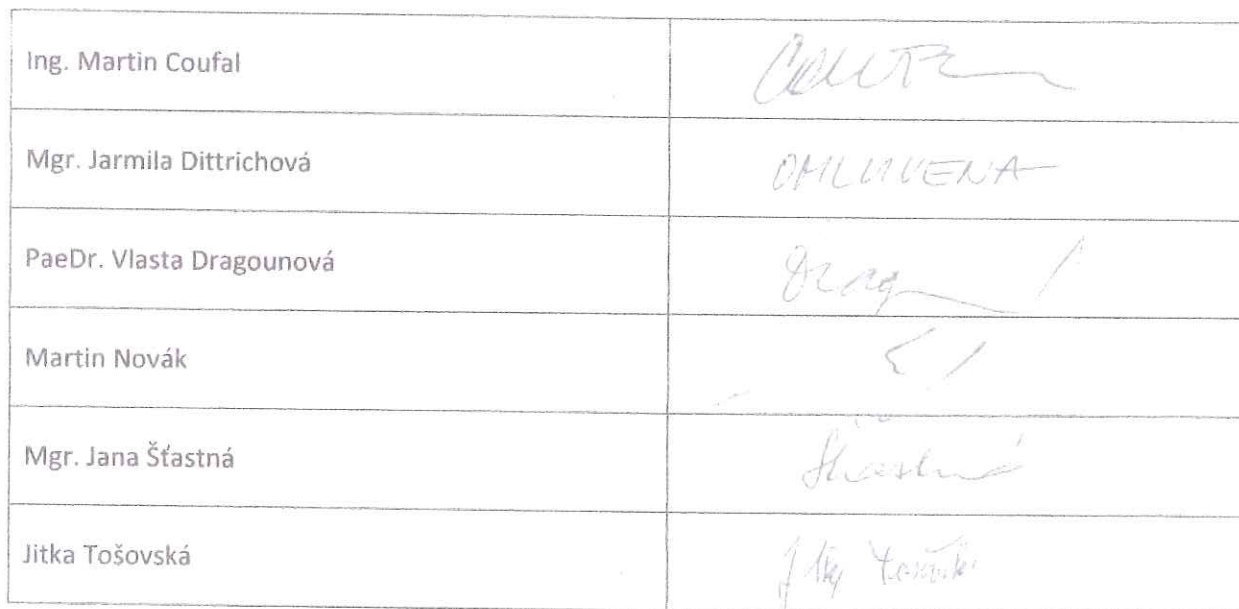 Ing. Martin Coufal
Mgr. Jarmila Dittrichová OMLUVENA
PaeDr. Vlasta Dragounová
Martin Novák
Mgr. Jana Šťastná Šťastná
Jitka Tošovská